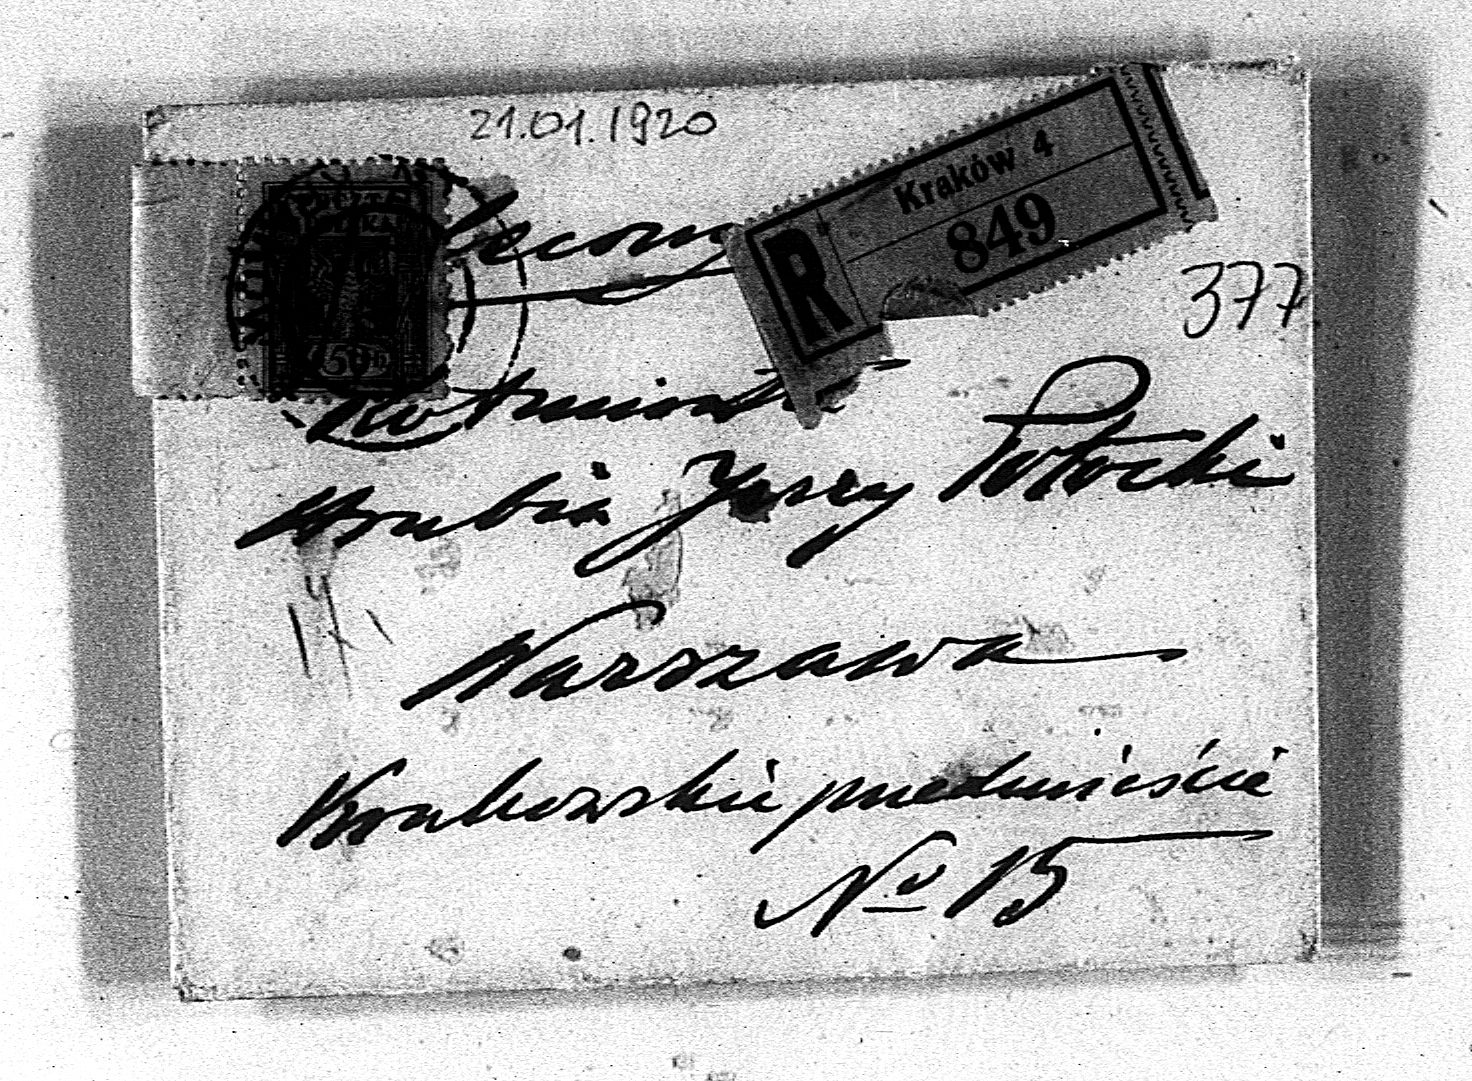 21.01.1920
Kraków 4
R 849
377
Rotmistrz
Hrabia Jerzy Potocki
Warszawa
Krakowskie przedmieście
No 15